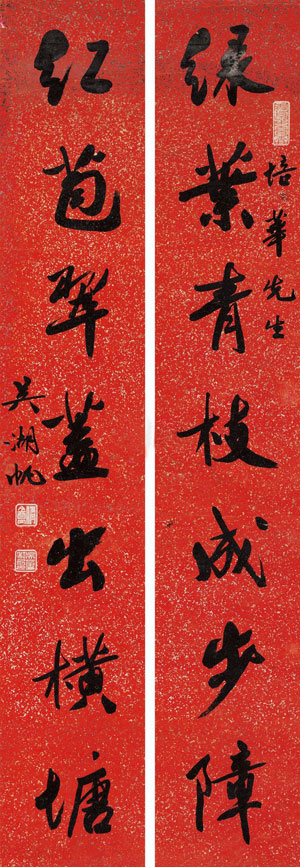 綠葉青枝成步障
培華先生
紅苞翠蓋出橫塘
吳湖帆